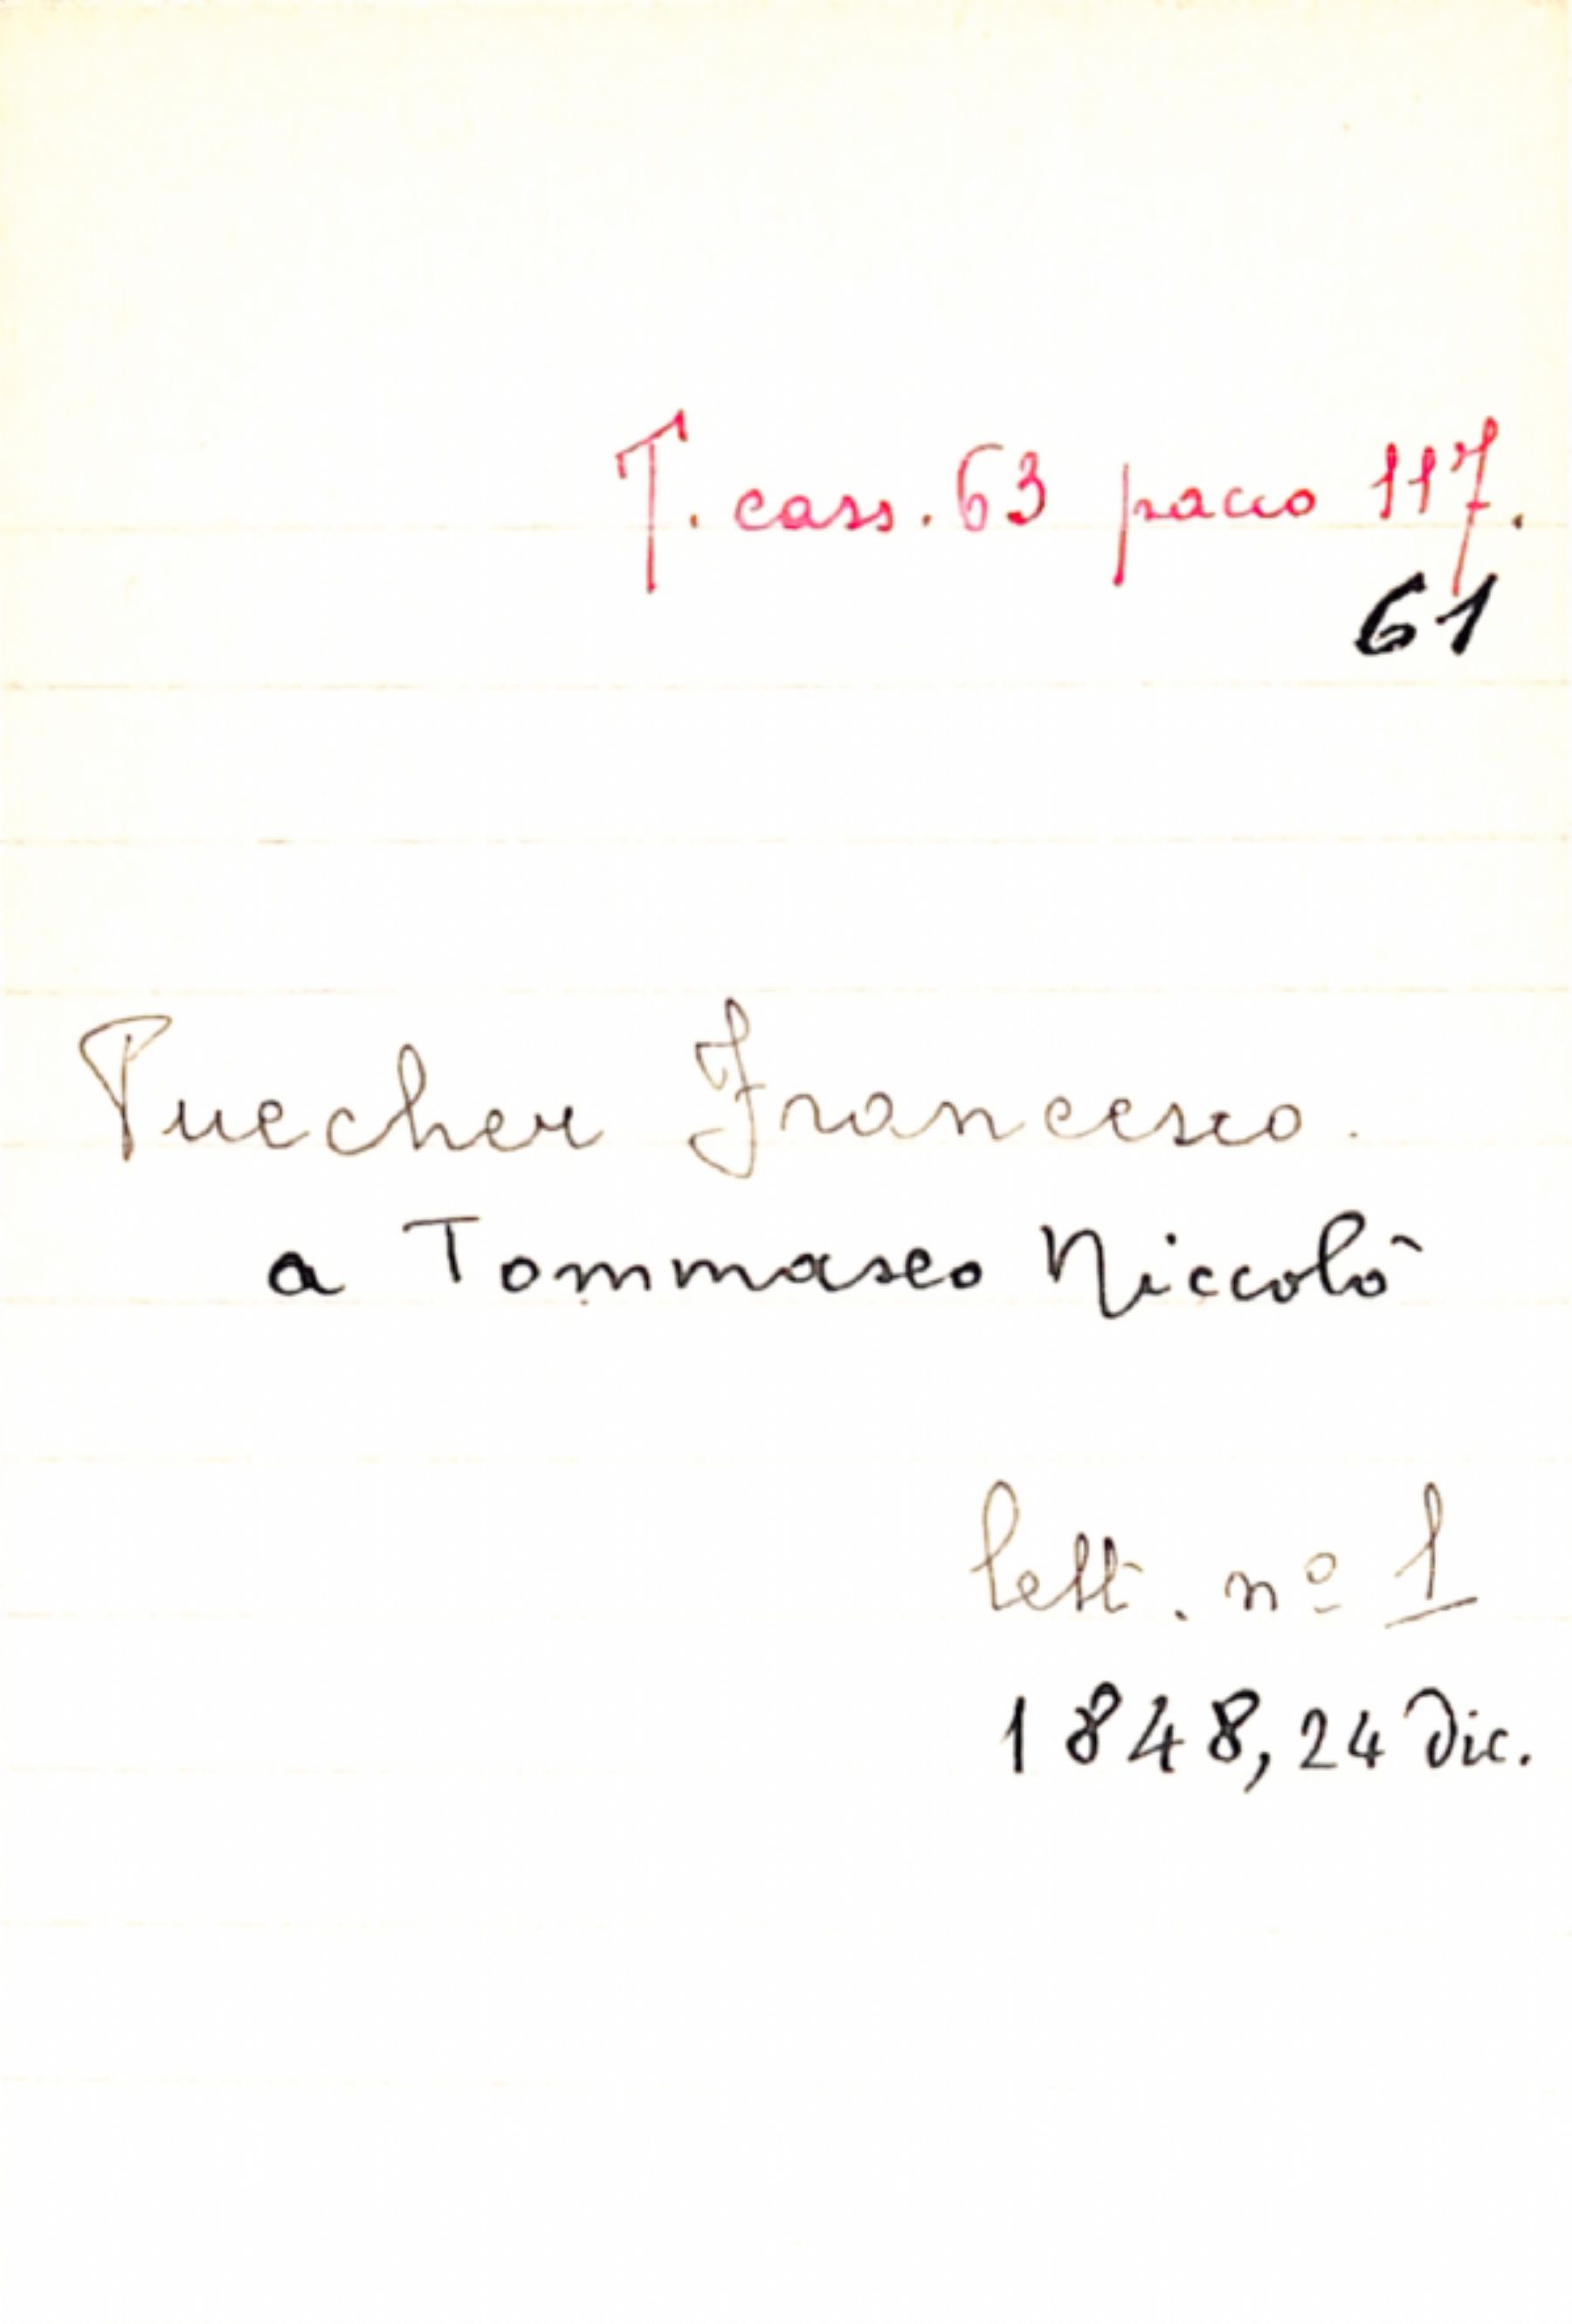 T. cass. 63 pacco 117.
61
Puecher Francesco.
a Tommaseo Niccolò
lett. nº 1
1848, 24 dic.